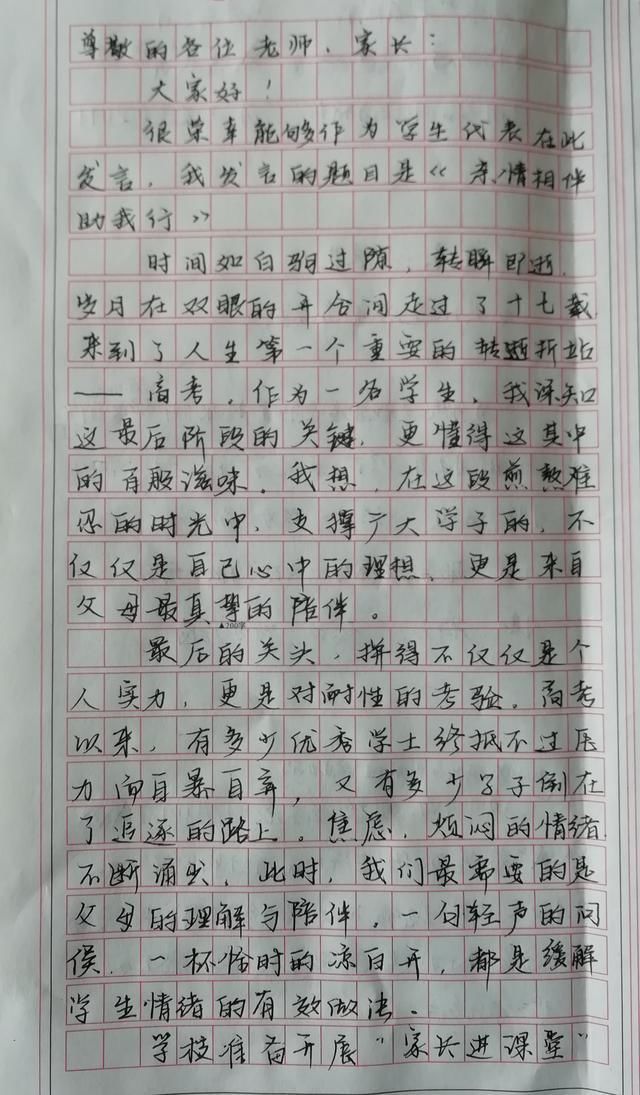 尊敬的各位老师、家长：
大家好！
很荣幸能够作为学生代表在此
发言，我发言的题目是《亲情相伴
助我行》
时间如白驹过隙，转瞬即逝，
岁月在双眼的开合间走过了十七载
来到了人生第一个重要的转折站
——高考。作为一名学生，我深知
这最后阶段的关键，更懂得这其中
的百般滋味。我想，在这段煎熬难
忍的时光中，支撑广大学子的，不
仅仅是自己心中的理想，更是来自
父母最真挚的陪伴。
▲200字
最后的关头，拼得不仅仅是个
人实力，更是对耐性的考验。高考
以来，有多少优秀学士终抵不过压
力而自暴自弃，又有多少学子倒在
了追逐的路上。焦虑，烦闷的情绪
不断涌出，此时，我们最需要的是
父母的理解与陪伴。一句轻声的问
候，一杯恰时的凉白开，都是缓解
学生情绪的有效做法。
学校准备开展“家长进课堂”